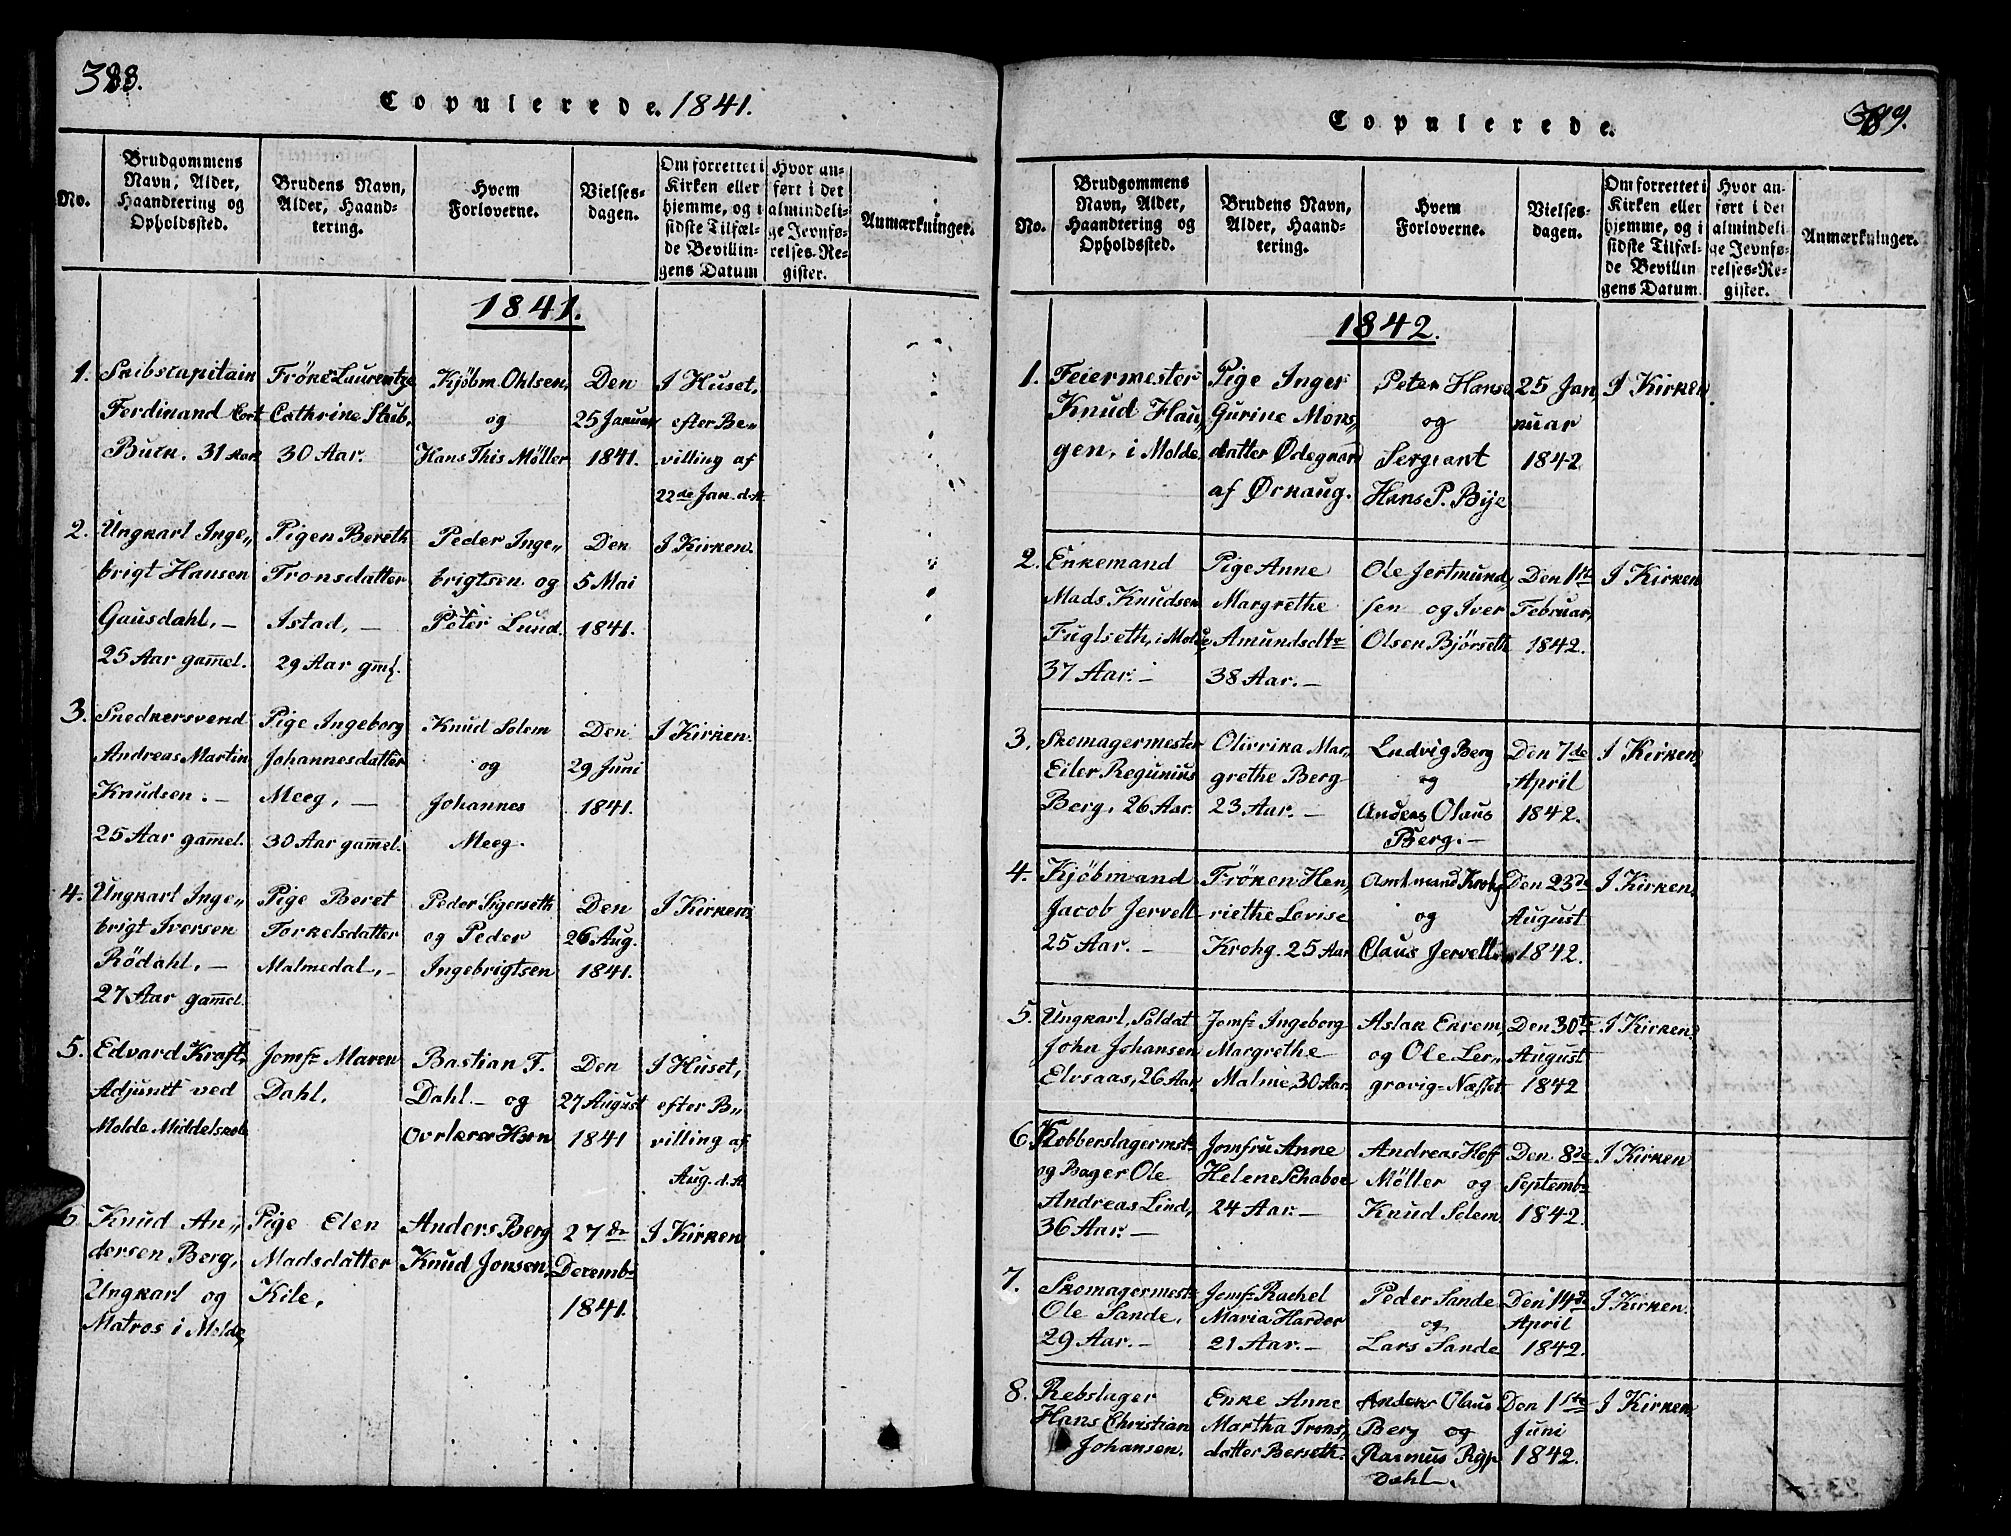 388.
Copulerede. 1841.
No.
Brudgommens Navn, Alder, Haandtering og Opholdssted.
Brudens Navn, Alder, Haandtering.
Hvem Forloverne.
Vielsesdagen.
Om forrettet i Kirken eller hjemme, og i sidste Tilfælde Bevillingens Datum
Hvor anført i det almindelige Jevnførelses-Register.
Anmærkninger.
1841.
1.
Skibscapitain
Ferdinand Cort
Buck. 31 Aar.
Frøken Laurentze
Cathrine Stub.
30 Aar.
Kjøbm. Ohlsen,
og
Hans This Møller
Den
25 Januar
1841.
I Huset,
efter Be„
villing af
22de Jan. d. A.
2.
Ungkarl Inge„
brigt Hansen
Gausdahl, –
25 Aar gam̄el.
Pigen Bereth
Tronsdatter
Istad, –
29 Aar gml.
Peder Inge„
brigtsen og
Peter Lund.
Den
5 Mai
1841.
I Kirken.
3.
Snedkersvend
Andreas Martin
Knudsen. –
25 Aar gam̄el.
Pige Ingeborg
Johannesdatter
Meeg, –
30 Aar gam̄el.
Knud Solem
og
Johannes
Meeg.
Den
29 Juni
1841.
I Kirken.
4.
Ungkarl Inge„
brigt Iversen
Rödahl, –
27 Aar gam̄el.
Pige Beret
Torkelsdatter
Malmedal, –
Peder Sigerseth
og Peder
Ingebrigtsen
Den
26 Aug.
1841.
I Kirken.
5.
Edvard Kraft,
Adjunct ved
Molde Middelskole
Jomfr Maren
Dahl.
Bastian F.
Dahl – og
Overlærer
Den
27 August
1841
I Huset,
efter B„
villing af
Aug. d. A.
6
Knud An„
dersen Berg,
Ungkarl og
Matros i Molde,
Pige Elen
Madsdatter
Kile,
Anders Berg
Knud Jonsen.
27de
Decembr
1841.
I Kirken
389.
Copulerede.
No.
Brudgommens Navn, Alder, Haandtering og Opholdssted.
Brudens Navn, Alder, Haandtering.
Hvem Forloverne.
Vielsesdagen.
Om forrettet i Kirken eller hjemme, og i sidste Tilfælde Bevillingens Datum.
Hvor anført i det almindelige Jevnførelses-Register.
Anmærkninger.
1842.
1.
Feiermester
Knud Hau„
gen, i Molde,
Pige Inger
Gurine Mons„
datter Ødegaard
af Ørkaug.
Peter Hansen
og
Sergeant
Hans P. Bye
25 Jan„
nuar
1842
I Kirken.
2.
Enkemand
Mads Knudsen
Fuglseth, i Molde
37 Aar. –
Pige Anne
Margrethe
Amundsdtr
38 Aar. –
Ole Jertmund„
sen og Iver
Olsen Bjørseth
Den 1ste
Februar,
1842.
I Kirken
3.
Skomagermester
Eiler Regunius
Berg, 26 Aar.
Olivrika Mar„
grethe Berg
23 Aar. –
Ludvig Berg
og
Anders Olaus
Berg. –
Den 7de
April
1842.
I Kirken
4.
Kjöbmand
Jacob Jervell
25 Aar. –
Fröken Hen„
riethe Lovise
Krohg. 25 Aar
Amtmand Krohg
og
Claus Jervell
Den 23de
August
1842.
I Kirken.
5.
Ungkarl, Soldat
John Johansen
Elvsaas, 26 Aar,
Jomfr Ingeborg
Margrethe
Malme, 30 Aar.
Aslak Enrem
og Ole Ler„
grovig-Næsset
Den 30te
August
1842
I Kirken.
6.
Kobberslagermstr
og Bager Ole
Andreas Lind,
36 Aar. –
Jomfru Anne
Helene Schaboe
24 Aar. –
Andreas Hoff
Møller og
Knud Solem
Den 8de
Septembr
1842.
I Kirken
7.
Skomagermestr
Ole Sande,
29 Aar. –
Jomfr Rachel
Maria Harder
21 Aar. –
Peder Sande
og
Lars Sande
Den 14de
April
1842.
I Kirken.
8.
Rebslager
Hans Christian
Johansen.
Enke Anne
Martha Trons„
datter Berseth.
Anders Olaus
Berg og
Rasmus Ryp
Dahl.
Den 1ste
Juni
1842.
I Kirken.